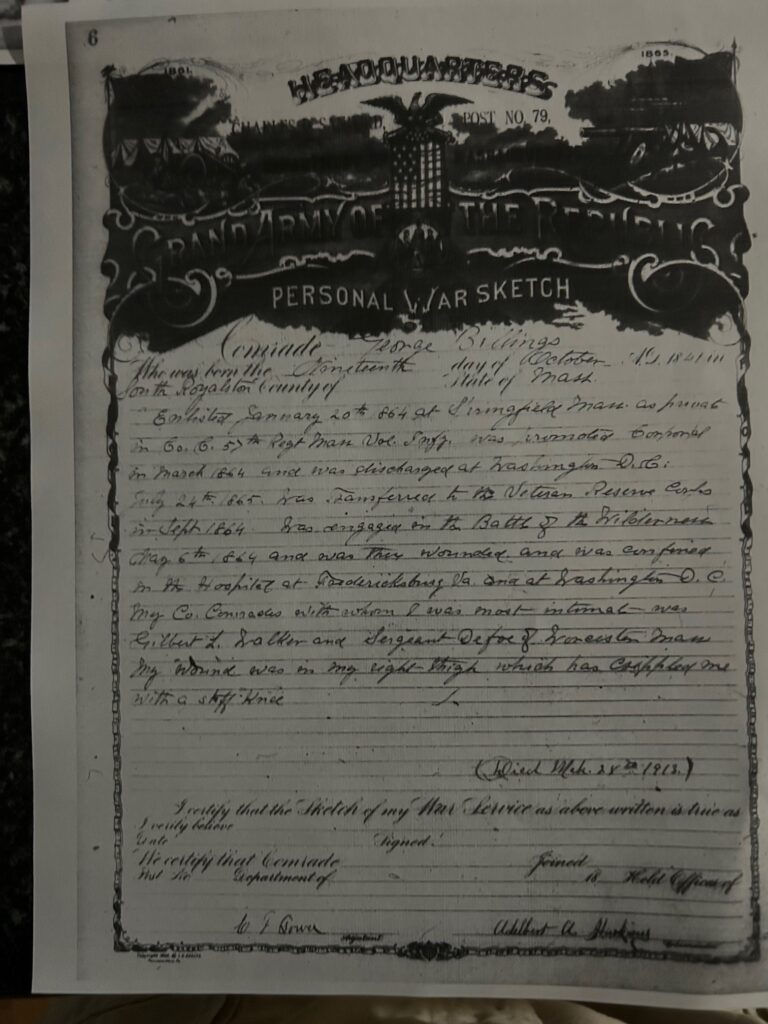 6
1861.
1865.
HEADQUARTERS
CHARLES POST NO. 79,
GRAND ARMY OF THE REPUBLIC
PERSONAL WAR SKETCH
Comrade George Billings
Who was born the Nineteenth day of October A.D. 1841 in
South Royalston County of State of Mass.
Enlisted January 20th 1864 at Springfield Mass. as privat
in Co. C. 57th Regt Mass Vol. Infy. was promoted Corporal
in March 1864 and was discharged at Washington D.C.
July 24th 1865. Was Transferred to the Veteran Reserve Corps
in Sept 1864. Was engaged in the Battle of the Wilderness
May 6th 1864 and was then wounded and was confined
in the Hospital at Fredericksburg Va. and at Washington D.C.
My Co. Comrades with whom I was most intimat was
Gilbert L. Walker and Sergeant Defoe of Worcester Mass
My wound was in my right thigh which has crippled me
with a stiff Knee
(Died Mch. 1913.)
I certify that the Sketch of my War Service as above written is true as
I verily believe
Date Signed:
We certify that Comrade Joined
Post No. Department of 18 Held Offices of
C F Adelbert A.
Adjutant
Copyright